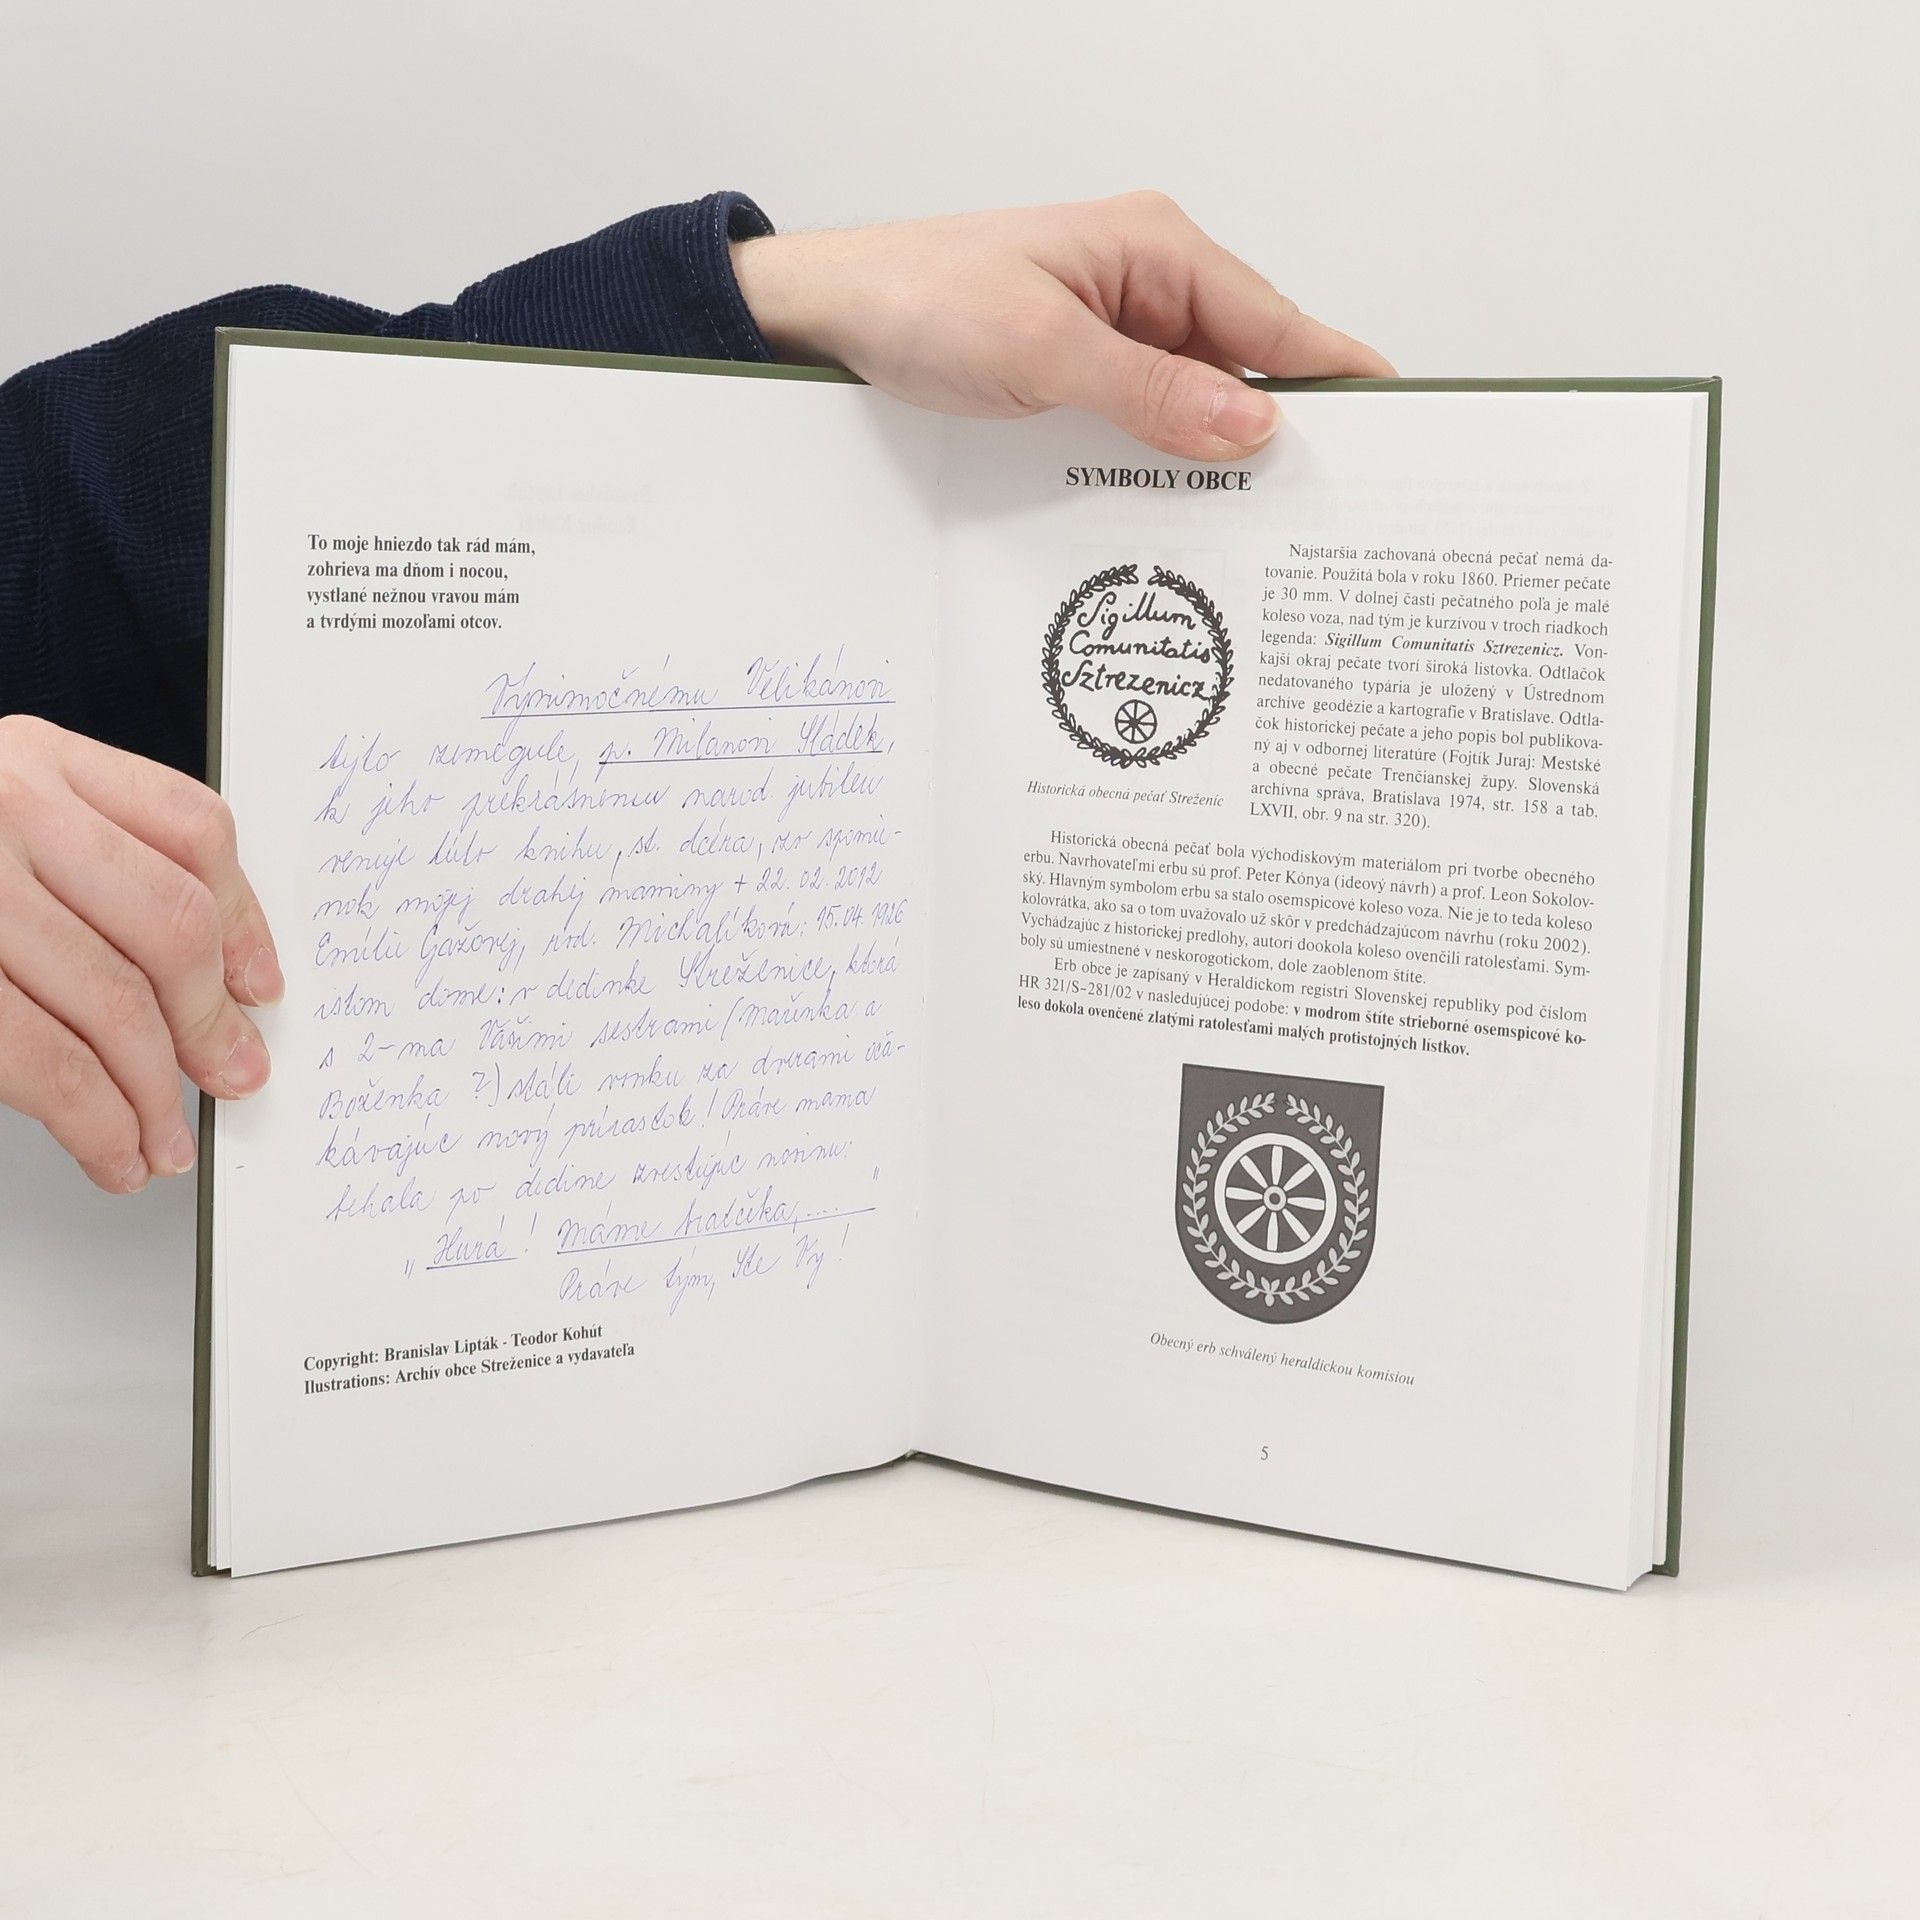 To moje hniezdo tak rád mám,
zohrieva ma dňom i nocou,
vystlané nežnou vravou mám
a tvrdými mozoľami otcov.
Výnimočnému Velikánovi
tejto zemegule, p. Milanovi Sládek,
k jeho prekrásnemu narod. jubileu
venuje túto knihu, st. dcéra, zo spomie-
nok mojej drahej maminy + 22. 02. 2012
Emílie Gažovej, rod. Michalíková: 15.04. 1926
istom dome: v dedinke Streženice, ktorá
s 2-ma Vašimi sestrami (Marínka a
Boženka ?) stáli vonku za dvirami oča-
kávajúc nový prírastok! Práve mama
behala po dedine zvestujúc novinu:
„Hurá! Máme bratčeka,...."
Práve tým, Ste Vy!
Copyright: Branislav Lipták - Teodor Kohút
Ilustrations: Archív obce Streženice a vydavateľa
SYMBOLY OBCE
Sigillum
Comunitatis
Sztrezenicz
Historická obecná pečať Streženíc
Najstaršia zachovaná obecná pečať nemá da-
tovanie. Použitá bola v roku 1860. Priemer pečate
je 30 mm. V dolnej časti pečatného poľa je malé
koleso voza, nad tým je kurzívou v troch riadkoch
legenda: Sigillum Comunitatis Sztrezenicz. Von-
kajší okraj pečate tvorí široká listovka. Odtlačok
nedatovaného typária je uložený v Ústrednom
archíve geodézie a kartografie v Bratislave. Odtla-
čok historickej pečate a jeho popis bol publikova-
ný aj v odbornej literatúre (Fojtík Juraj: Mestské
a obecné pečate Trenčianskej župy. Slovenská
archívna správa, Bratislava 1974, str. 158 a tab.
LXVII, obr. 9 na str. 320).
Historická obecná pečať bola východiskovým materiálom pri tvorbe obecného
erbu. Navrhovateľmi erbu sú prof. Peter Kónya (ideový návrh) a prof. Leon Sokolov-
ský. Hlavným symbolom erbu sa stalo osemspicové koleso voza. Nie je to teda koleso
kolovrátka, ako sa o tom uvažovalo už skôr v predchádzajúcom návrhu (roku 2002).
Vychádzajúc z historickej predlohy, autori dookola koleso ovenčili ratolesťami. Sym-
boly sú umiestnené v neskorogotickom, dole zaoblenom štíte.
Erb obce je zapísaný v Heraldickom registri Slovenskej republiky pod číslom
HR 321/S-281/02 v nasledujúcej podobe: v modrom štíte strieborné osemspicové ko-
leso dokola ovenčené zlatými ratolesťami malých protistojných lístkov.
Obecný erb schválený heraldickou komisiou
5